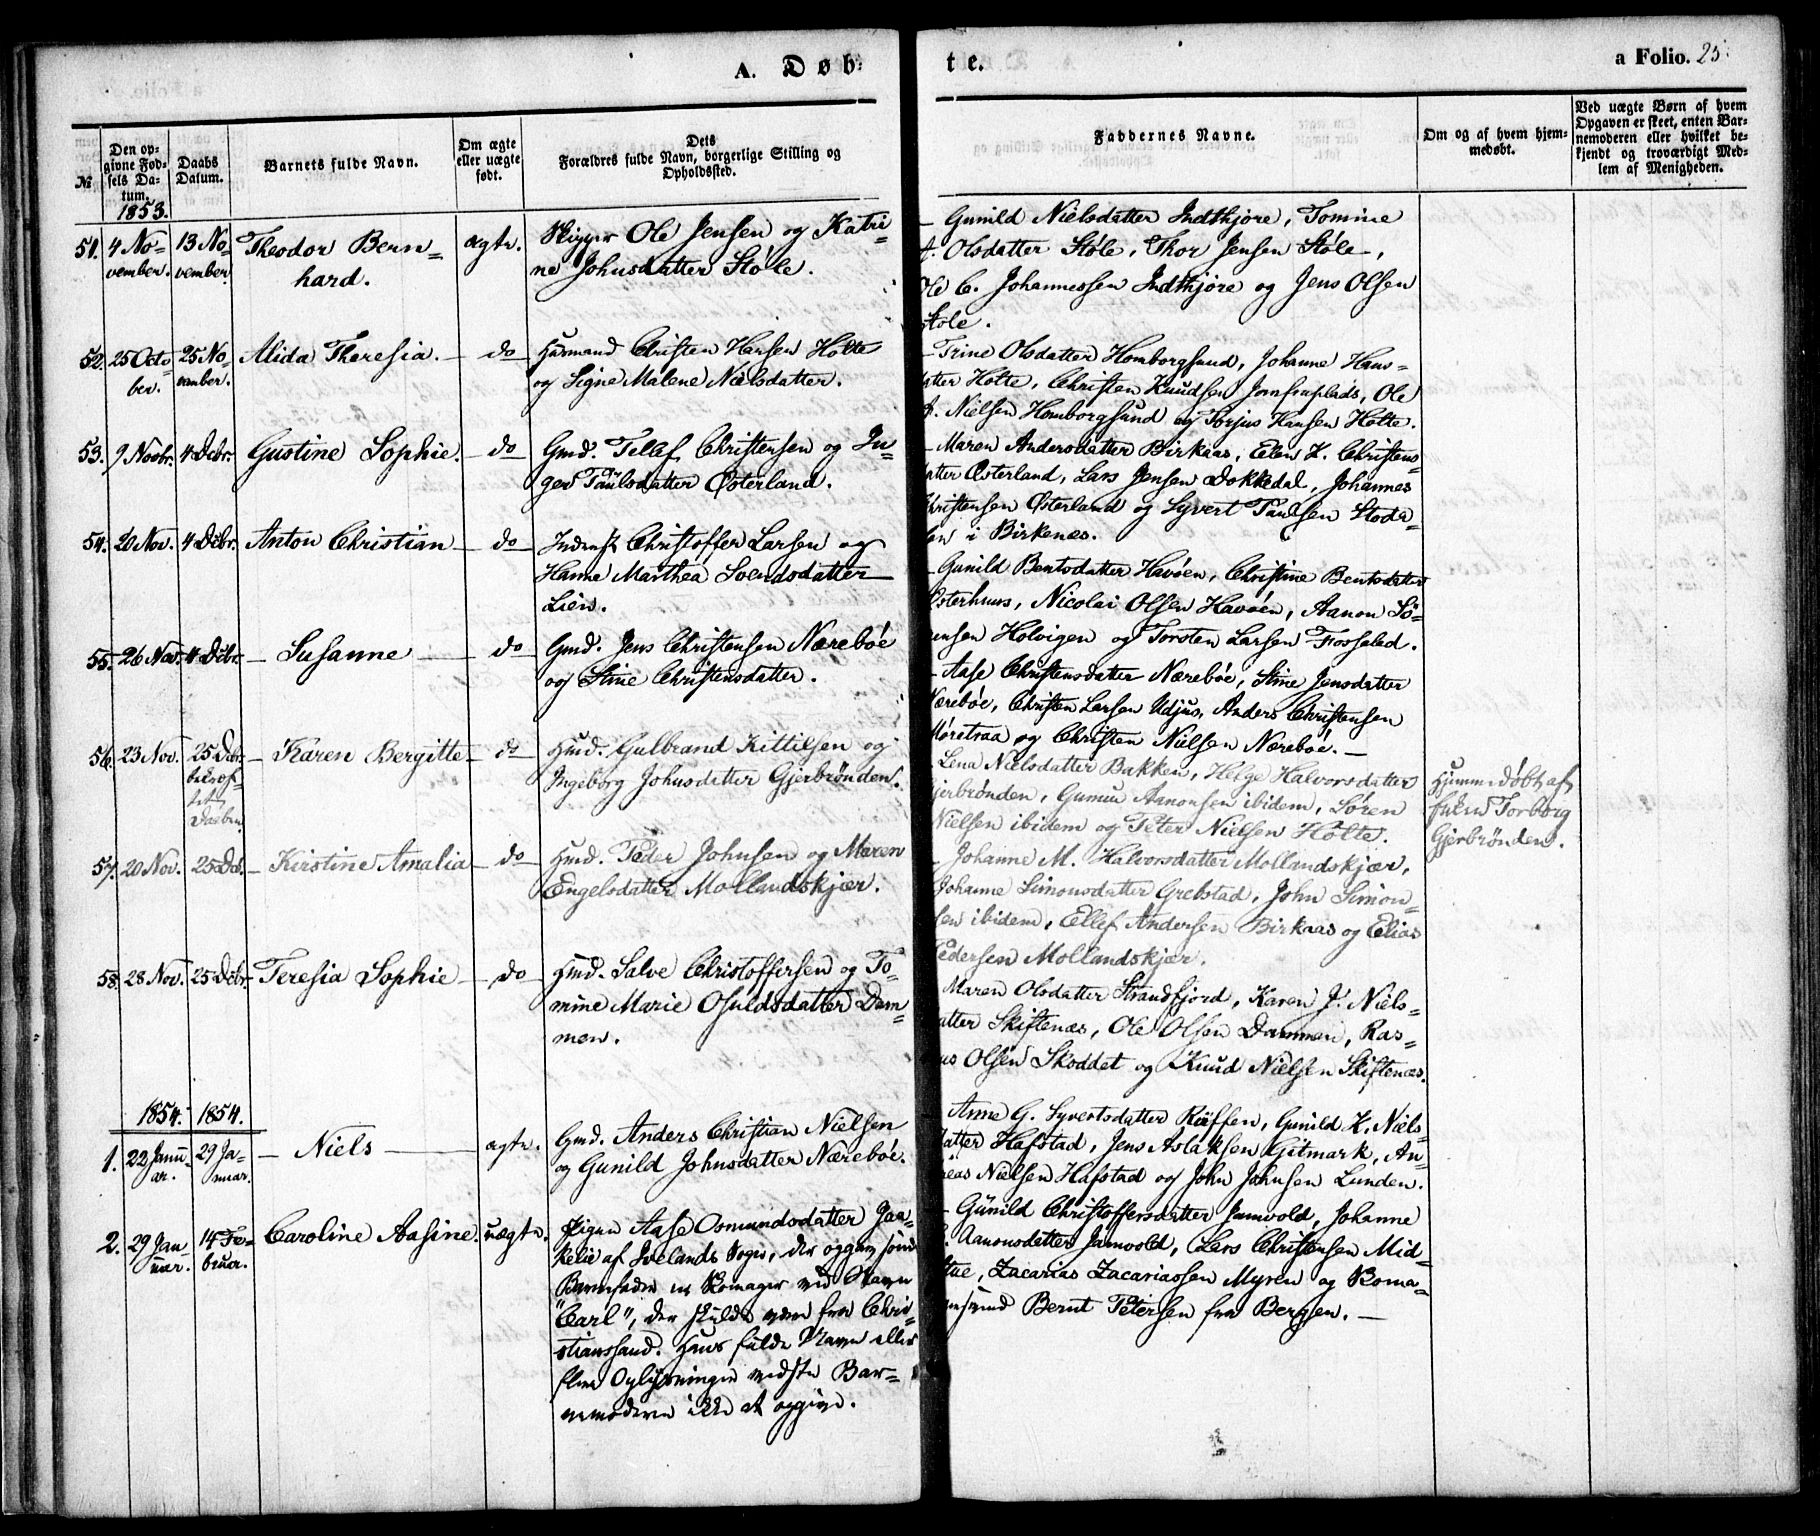 A. Døb-
te.
a Folio. 25.
№
Den op-
givne Fød-
sels Da-
tum.
1853.
Daabs
Datum.
Barnets fulde Navn.
Om ægte
eller uægte
født.
Dets
Forældres fulde Navn, borgerlige Stilling og
Opholdssted.
Faddernes Navne.
Om og af hvem hjem-
medøbt.
Ved uægte Børn af hvem
Opgaven er skeet, enten Bar-
nemoderen eller hvilket be-
kjendt og troværdigt Med-
lem af Menigheden.
51. 4 No-
vember.
13 No-
vember.
Theodor Bern-
hard.
ægte.
Skipper Ole Jensen og Katri-
ne Johnsdatter Støle.
Gunild Nielsdatter Indthjøre, Tomine
A. Olsdatter Støle, Thor Jensen Støle,
Ole C. Johannessen Indthjøre og Jens Olsen
Støle.
52. 25 Octo-
ber.
25 No-
vember.
Alida Theresia.
do
Huusmand Christen Hansen Holte
og Signe Malene Nielsdatter.
Trine Olsdatter Homborgsund, Johanne Hans-
datter Holte, Christen Knudsen Jomfruplads, Ole
A. Nielsen Homborgsund og Torjus Hansen Holte.
53. 9 Novbr. 4 Dcbr. Gustine Sophie.
do
Gmd. Tellef Christensen og In-
ger Taulsdatter Østerland.
Maren Andersdatter Birkaas, Elen K. Christens-
datter Østerland, Lars Jensen Dokkedal, Johannes
Christensen Østerland og Syvert Taulsen Stoda-
len i Birkenæs.
54. 20 Nov. 4 Dcbr. Anton Christian
do
Inderst Christoffer Larsen og
Hanne Marthea Svendsdatter
Lien.
Gunild Bentsdatter Havøen, Christine Bentsdatter
Østerhuus, Nicolai Olsen Havøen, Aanon Sö-
rensen Holvigen og Torsten Larsen Fosseled.
55. 26 Nov. 4 Dcbr. Susanne
do
Gmd. Jens Christensen Nærebøe
og Stine Christensdatter.
Aase Christensdatter Nærebøe, Stine Jensdatter
Nærebøe, Christen Larsen Udjus, Anders Christensen
Møretraa og Christen Nielsen Nærebøe.
56. 23 Nov. 25 Dcbr.
bekræf-
tet
Daaben
Karen Bergitte
do
Hmd. Gulbrand Kittilsen og
Ingeborg Johnsdatter Gjerbrønden.
Lena Nielsdatter Bakken, Helge Halvorsdatter
Gjerbrønden, Gumun Aanonsen ibidem, Søren
Nielsen ibidem og Peter Nielsen Holte.
Hjemmedøbt af
Enken Torborg
Gjerbrønden.
57. 20 Nov. 25 Dcb. Kirstine Amalia
do
Hmd. Peder Johnsen og Maren
Engelsdatter Mollandskjær.
Johanne M. Halvorsdatter Mollandskjær,
Johanne Simonsdatter Grebstad, John Simon-
sen ibidem, Ellef Andersen Birkaas og Elias
Pedersen Mollandskjær.
58. 28 Nov. 25 Dcbr. Teresia Sophie
do
Hmd. Salve Christoffersen og To-
mine Marie Osuldsdatter Dam-
men.
Maren Olsdatter Strandfjord, Karen J. Niels-
datter Skiftenæs, Ole Olsen Dammen, Ras-
mus Olsen Skoddet og Knud Nielsen Skiftenæs.
1854. 1854.
1. 22 Janu-
ar.
29 Ja-
nuar.
Niels
ægte.
Gmd. Anders Christian Nielsen
og Gunild Johnsdatter Nærebøe.
Anne G. Syvertsdatter Røffen, Gunild K. Niels-
datter Hafstad, Jens Aslaksen Gitmark, An-
dreas Nielsen Hafstad og John Johnsen Lunden.
2. 29 Jan-
uar.
14 Fe-
bruar.
Caroline Aasine.
uægte.
Pigen Aase Osmundsdatter Jaa-
kelie af Ivelands Sogn, der opgav som
Barnefader en Skomager ved Navn
"Carl", der skulde være fra Chri-
stianssand. Hans fulde Navn eller
flere Oplysninger vidste Bar-
nemoderen ikke at opgive.
Gunild Christoffersdatter Jamvold, Johanne
Aanonsdatter Jamvold, Lars Christensen Mid-
tue, Zacarias Zacariassen Myren og Skoma-
gersvend Bernt Petersen fra Bergen.